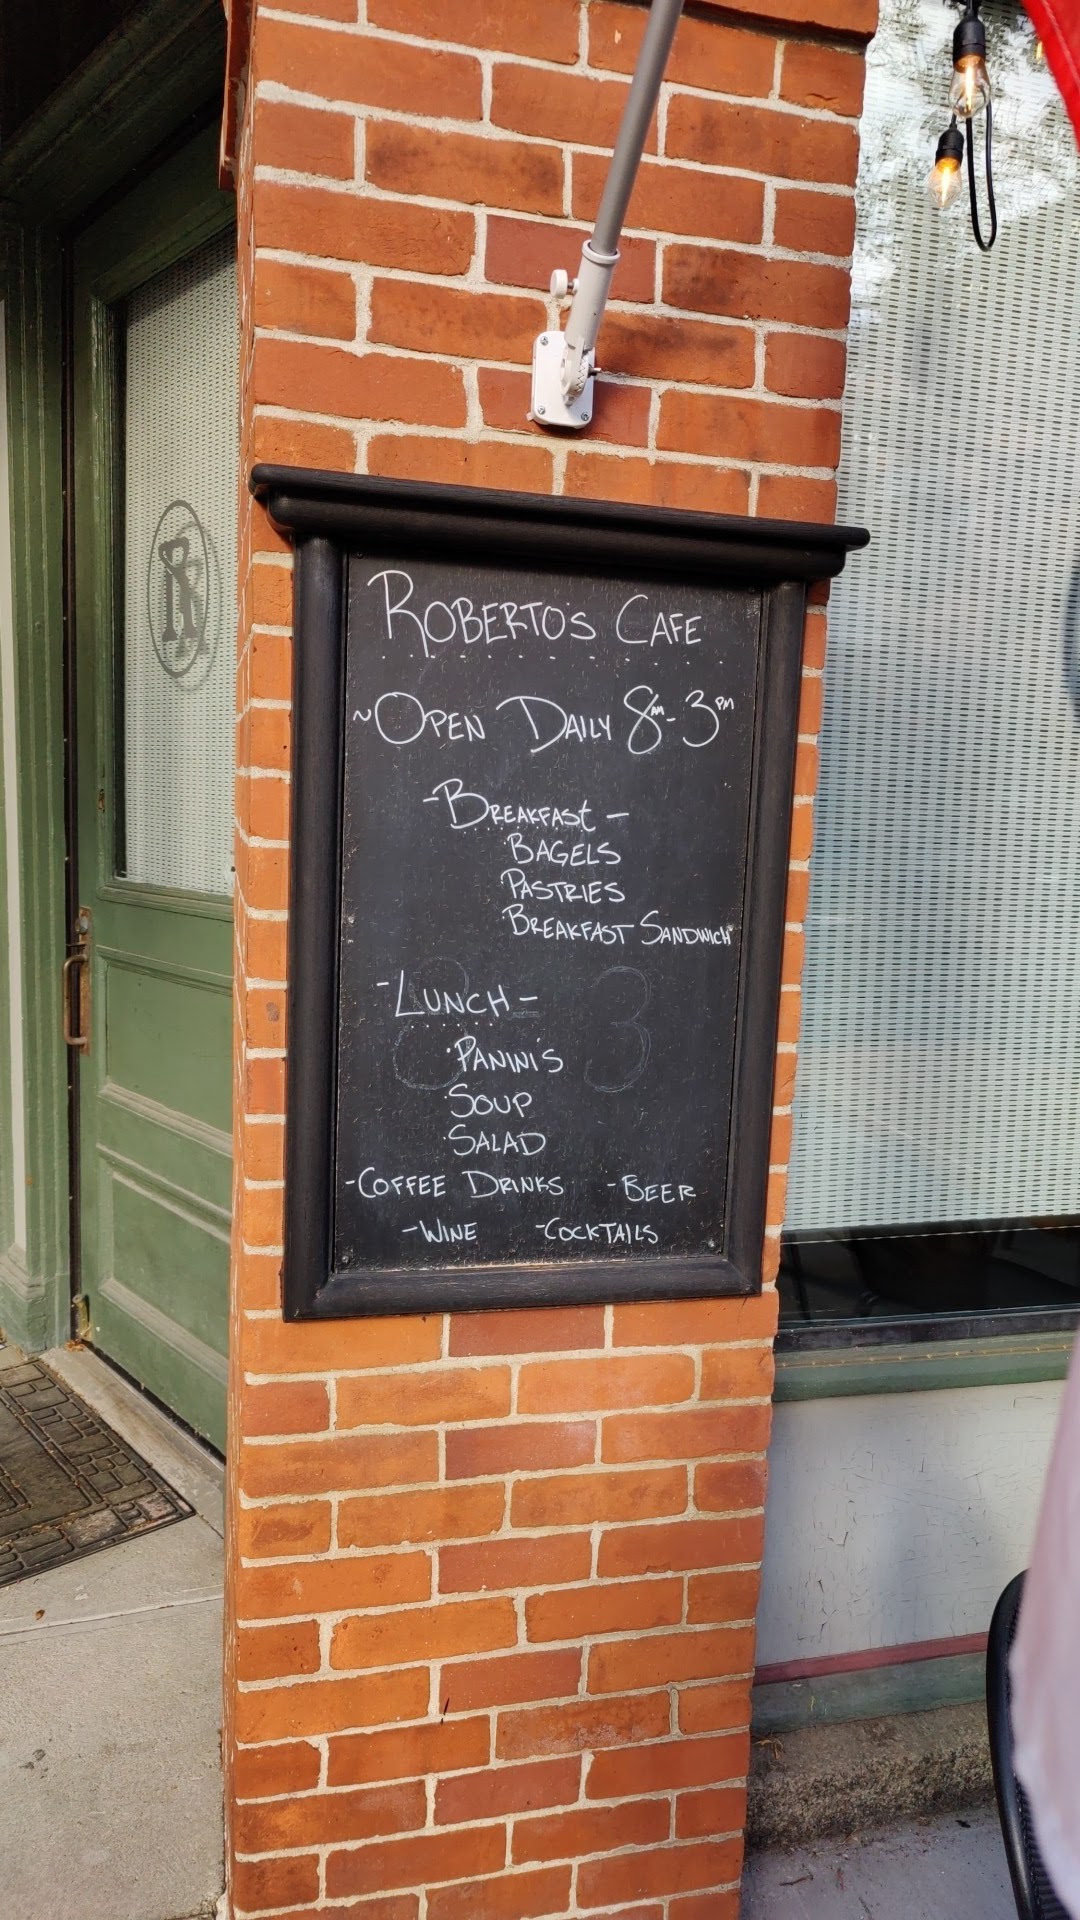 ROBERTO'S CAFE
~OPEN DAILY 8AM-3PM
-BREAKFAST-
BAGELS
PASTRIES
BREAKFAST SANDWICH
-LUNCH-
·PANINI'S
·SOUP
·SALAD
-COFFEE DRINKS -BEER
-WINE -COCKTAILS